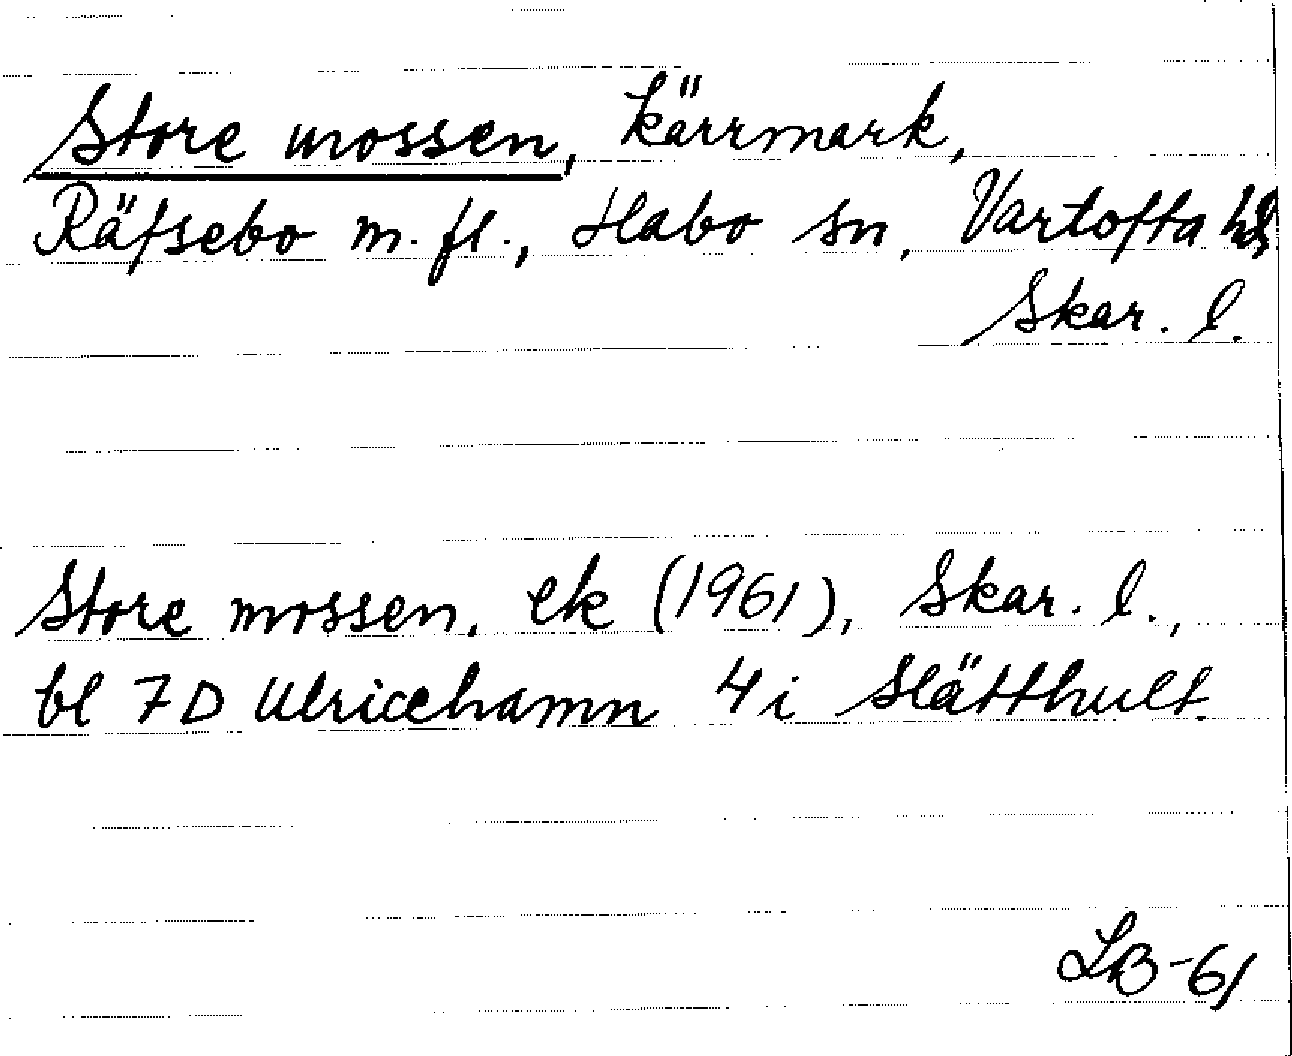 Store mossen, kärrmark,
Räfsebo m. fl., Habo sn, Vartofta hd
Skar. l.
Store mossen, ek (1961), Skar. l.,
bl 7D Ulricehamn 4i Slätthult.
LB-61